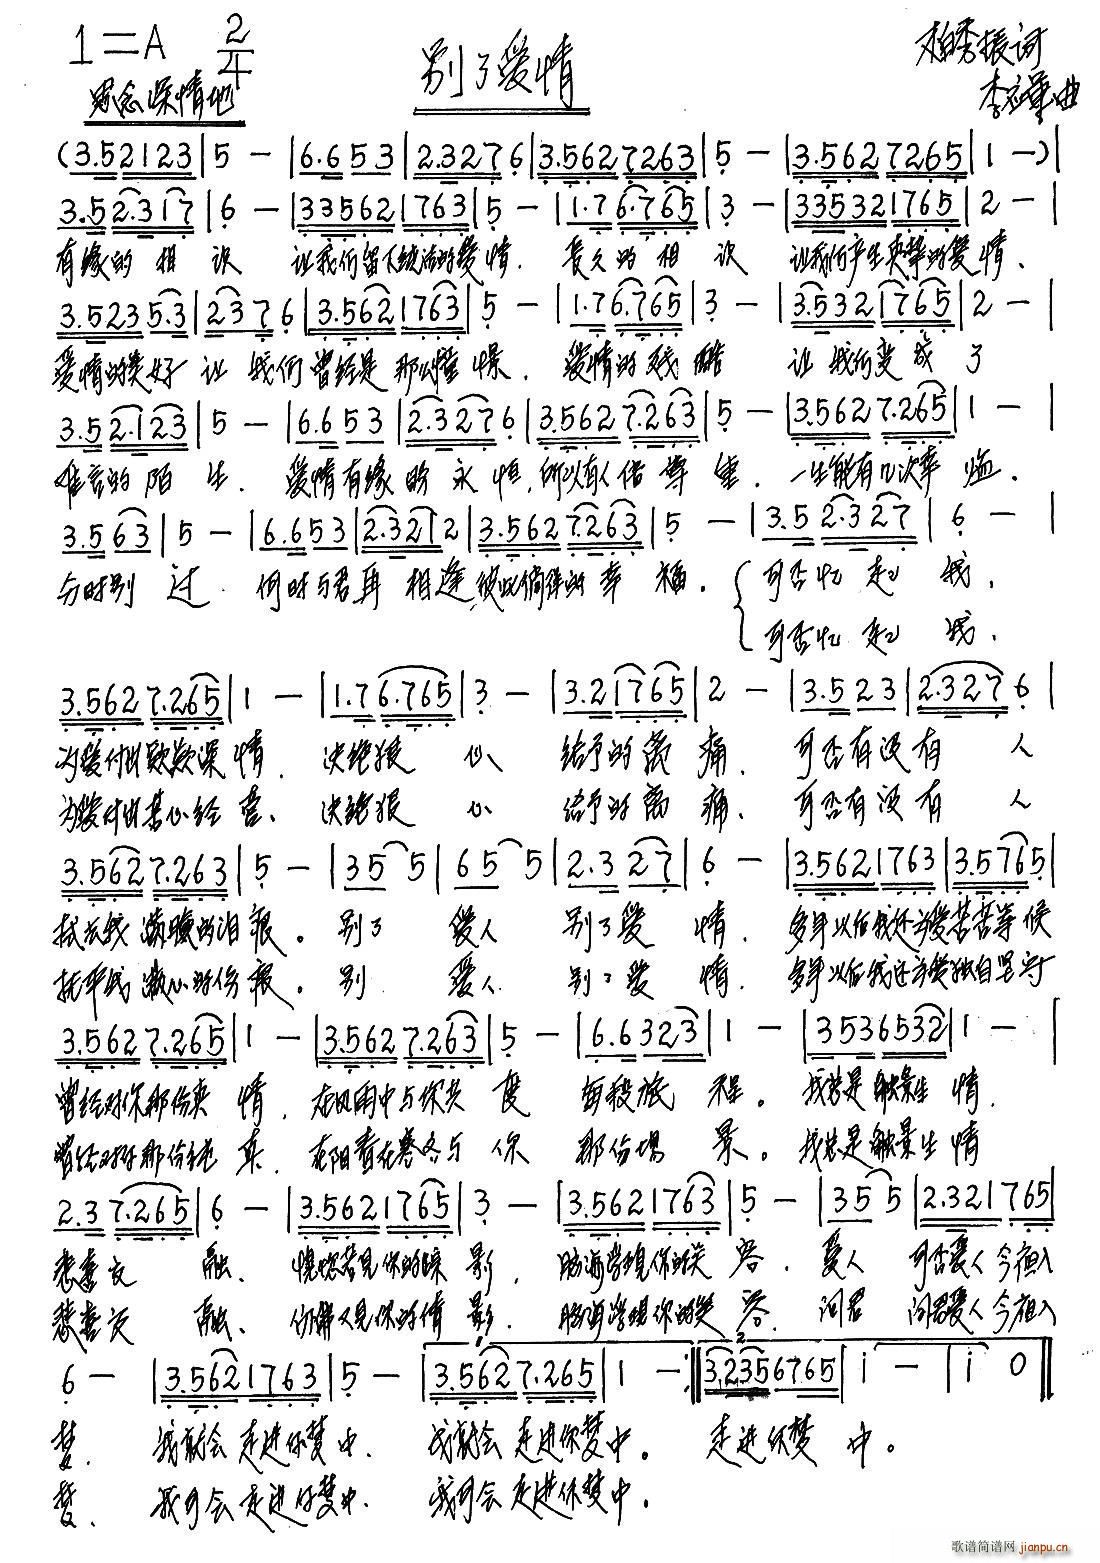 1=A 2/4 别了爱情 柏秀振词
思念深情地 李 曲
(3.52123|5 -|6.653|2.3276|3.5627263|5 -|3.5627265|1 -)|
3.52.317|6 -|335621763|5 -|1.76.765|3 -|335321765|2 -|
有缘的相识 让我们留下纯洁的爱情. 长久的相识 让我们产生真挚的爱情.
3.5235.3|2376|3.5621763|5 -|1.76.765|3 -|3.5321765|2 -|
爱情的美好让我们曾经是那么憧憬. 爱情的残酷 让我们变成了
3.52.123|5 -|6.653|2.3276|3.5627.263|5 -|3.5627.265|1 -|
难言的陌生. 爱情有缘的永恒,所以有人倍尊重. 一生能有几次幸 .
3.563|5 -|6.653|2.3212|3.5627.263|5 -|3.52.327|6 -|
今时别过. 何时与君再相逢,彼此倘徉的幸福. 可否忆起我.
可否忆起我.
3.5627.265|1 -|1.76.765|3 -|3.21765|2 -|3.523|2.3276|
为爱付出款款深情. 决绝狠心 给予的离痛. 可否有没有人
为爱付出苦心经营. 决绝狠心 给予的离痛. 可否有没有人
3.5627.263|5 -|355|655|2.327|6 -|3.5621763|3.5765|
拭去我满腮的泪痕。别了 爱人 别了爱情. 多年以后我还为爱苦苦等候
抚平我满心的伤痕。别 爱人 别了爱情 多年以后我还为爱独自坚守
3.5627.265|1 -|3.5627.263|5 -|6.6323|1 -|3536532|1 -|
曾经对你那份真情. 在风雨中与你共度 每段旅程。我总是触景生情.
曾经对你那份纯真. 在阳春在寒冬与你 那份场景。我总是触景生情
2.37.265|6 -|3.5621765|3 -|3.5621763|5 -|355|2.321765|
悲喜交融. 恍惚若见你的踪影. 脑海学现你的笑容. 爱人 可否爱人今夜入
悲喜交融. 仿佛又见你的倩影. 脑海学现你的笑容. 问君 问君爱人今夜入
6 -|3.5621763|5 -|3.5627.265|1 -:||3.2356765|i -|i 0||
梦. 我就会走进你梦中. 我就会走进你梦中。 走进你梦中。
梦. 我可会走进你梦中. 我可会走进你梦中。
歌谱简谱网 jianpu.cn